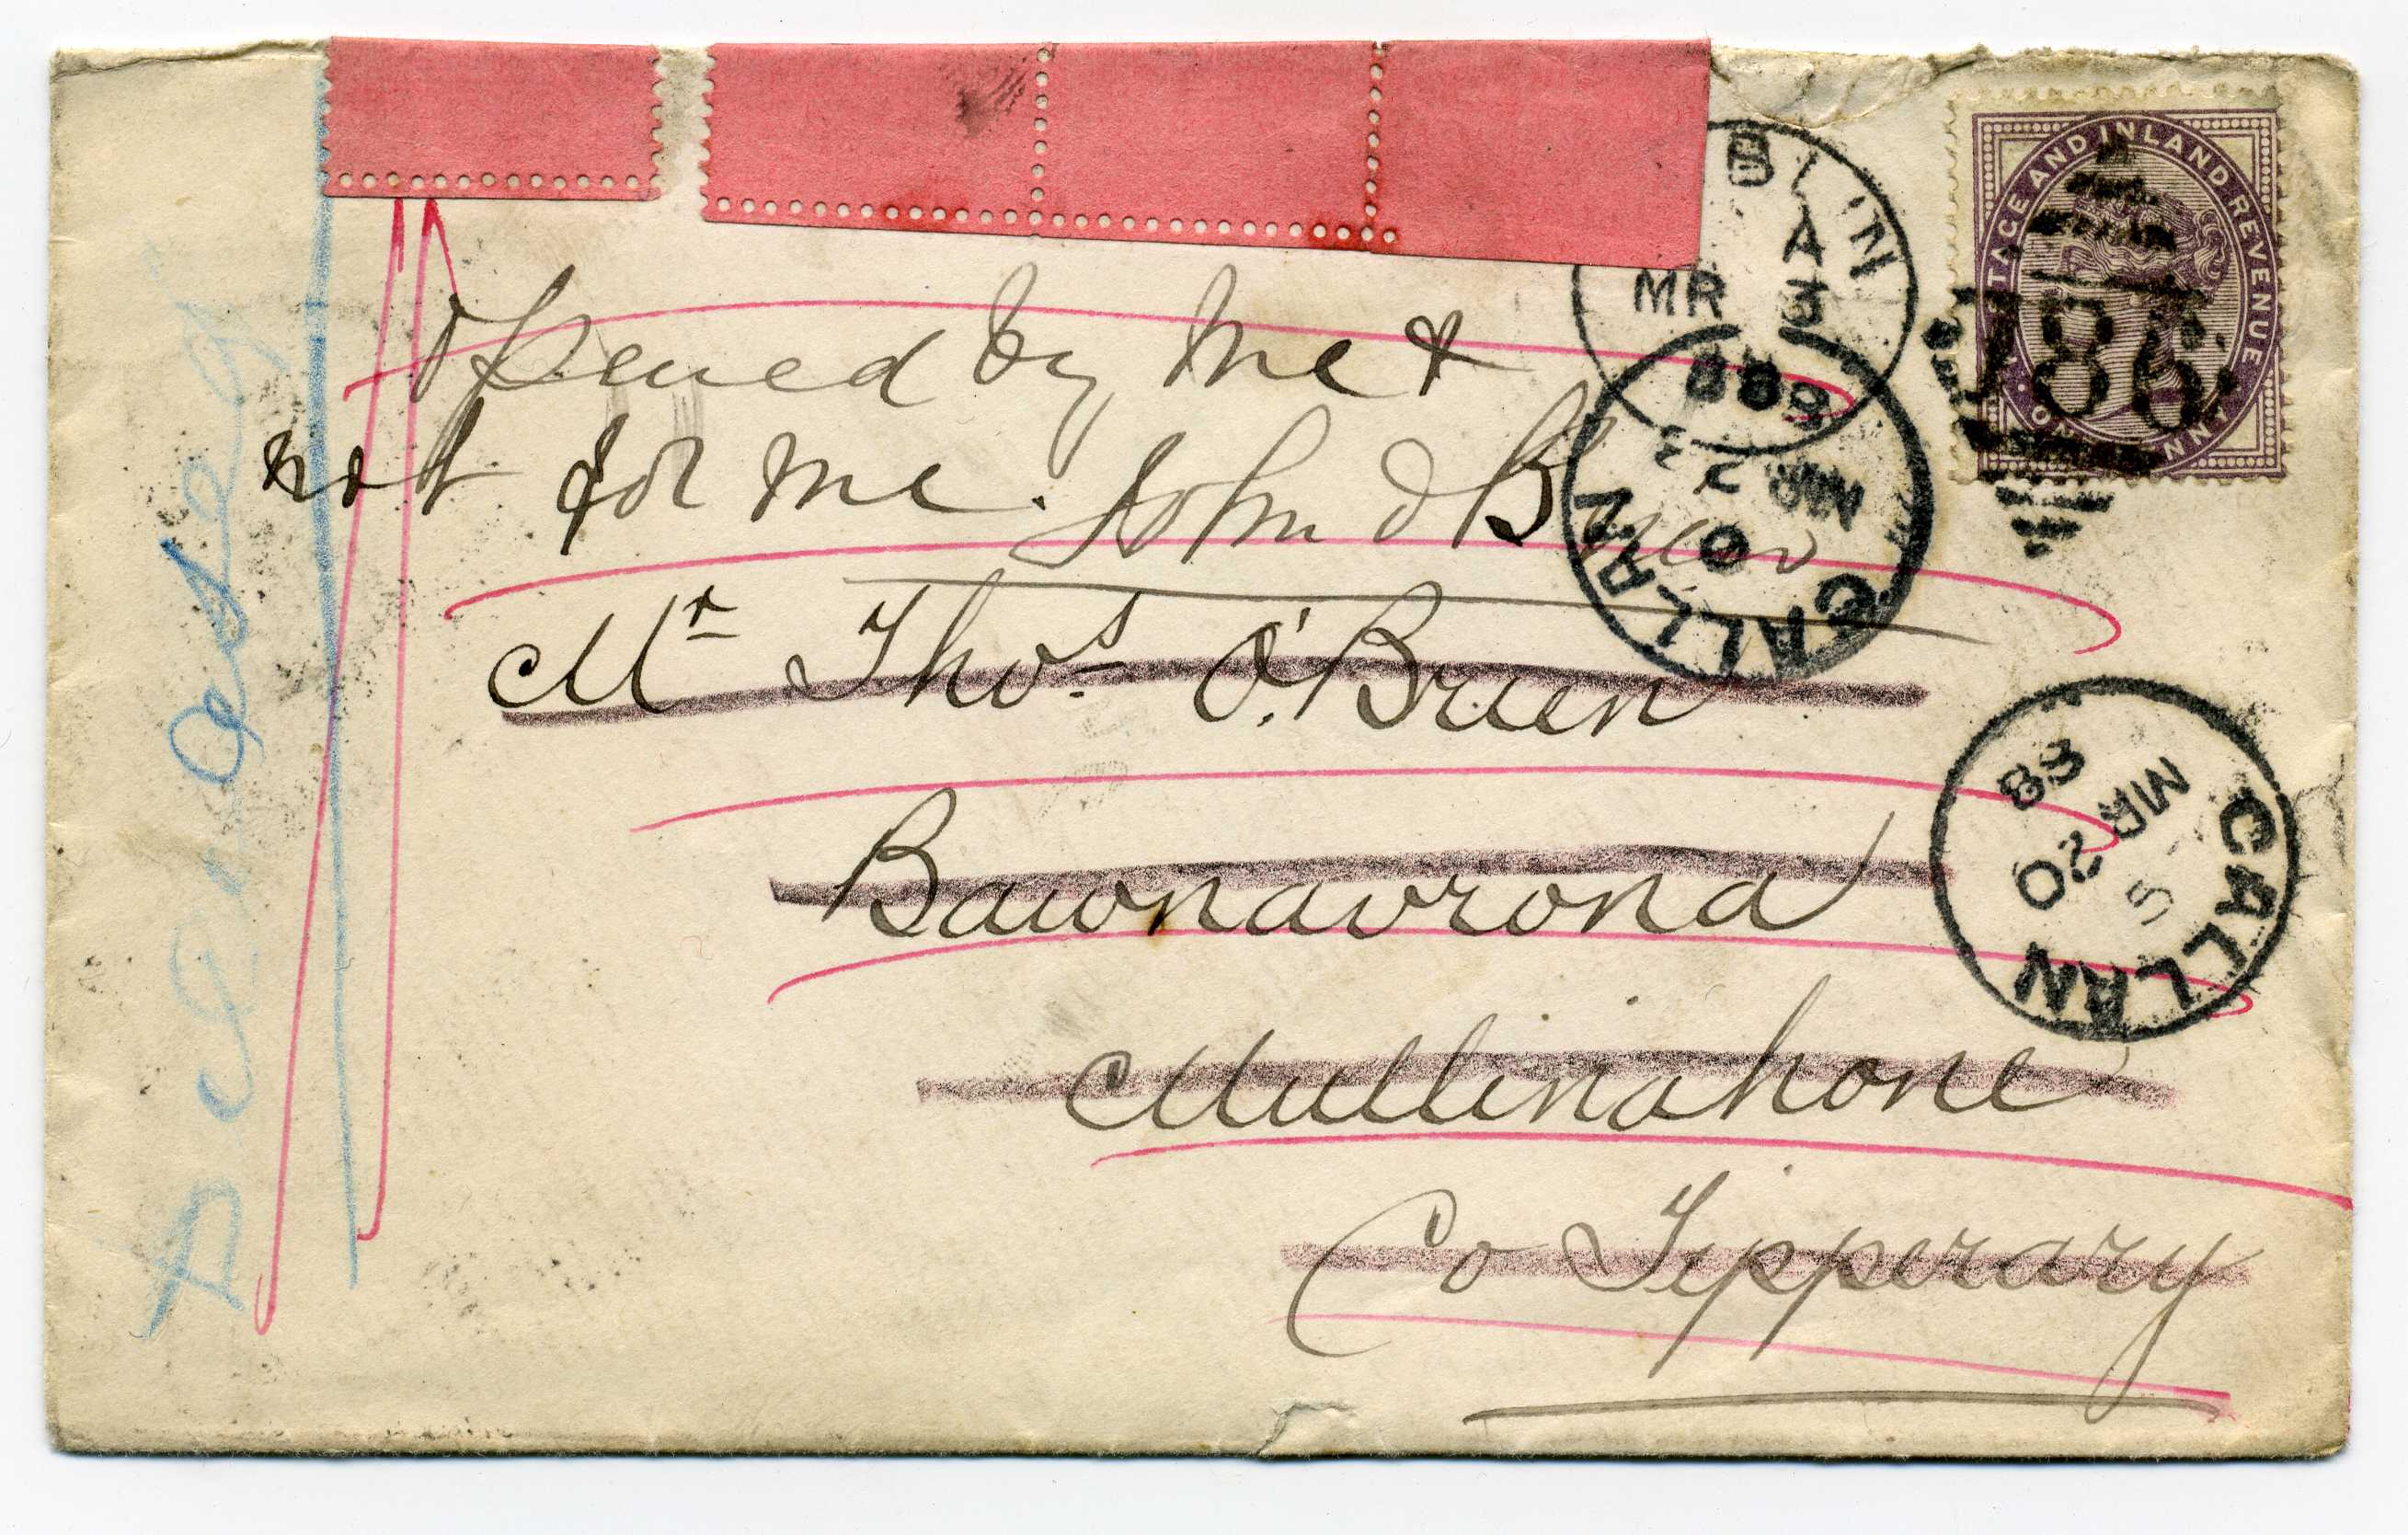 Opened by me &
not for me. John O Brien
Mr Thos O'Brien
Bawnavrona
Mullinahone
Co Tipperary
BLIN
A
MR 3
88
CALLAN
MR
88
CALLAN
S
MR 20
88
POSTAGE AND INLAND REVENUE
ONE PENNY
186